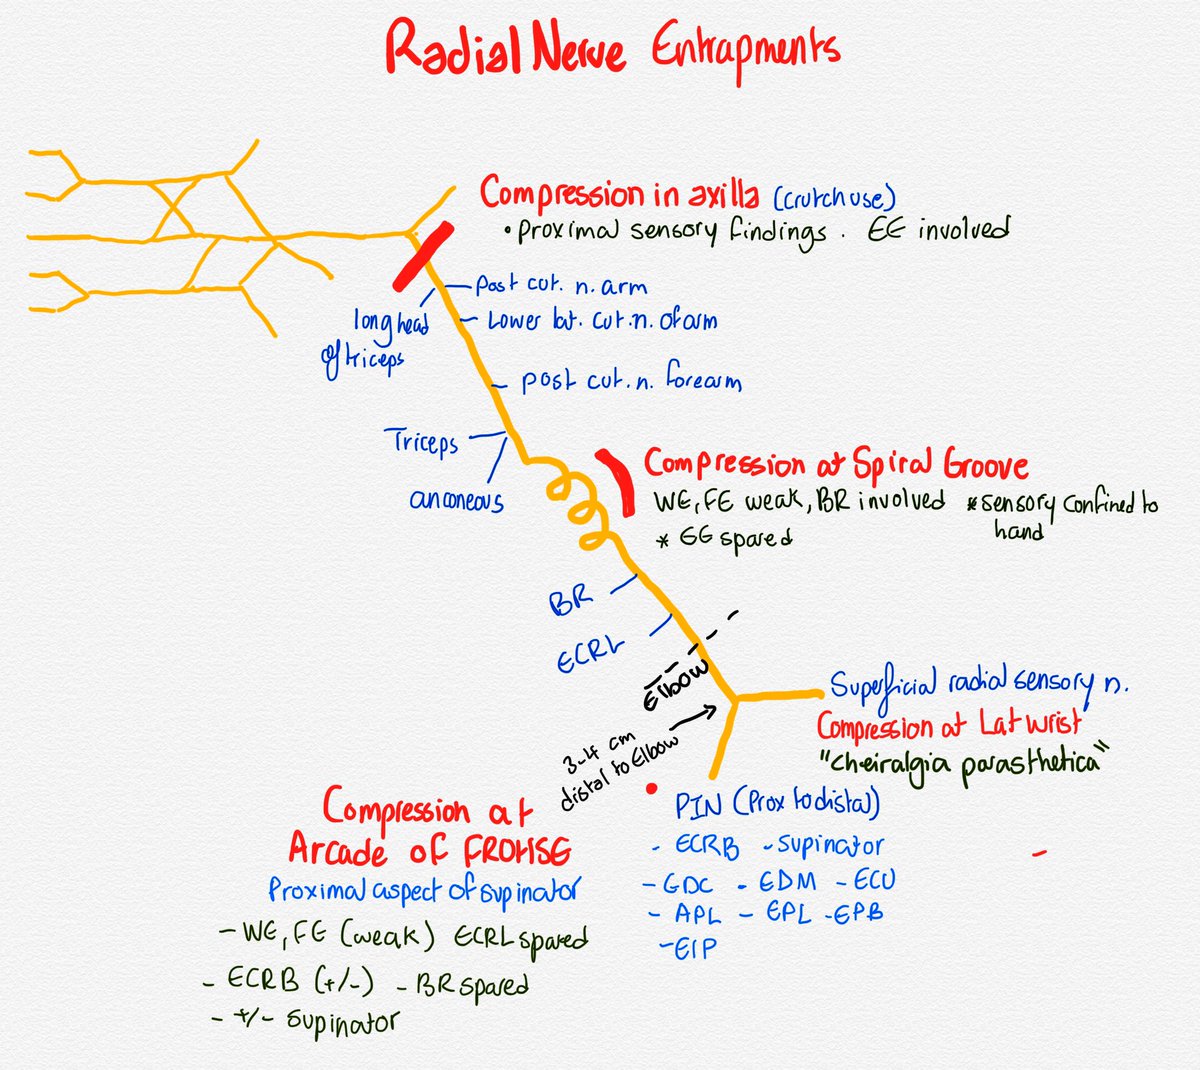 Radial Nerve Entrapments
Compression in axilla (crutch use)
• Proximal sensory findings. EE involved
Post cut. n. arm
long head
of triceps
Lower lat. cut. n. of arm
post cut. n. forearm
Triceps
anconeous
Compression at Spiral Groove
WE, FE weak, BR involved * sensory confined to
hand
* EE spared
BR
ECRL
Elbow
3-4 cm
distal to Elbow
Superficial radial sensory n.
Compression at Lat wrist
"cheiralgia parasthetica"
PIN (Prox to distal)
- ECRB - Supinator
- EDC - EDM - ECU
- APL - EPL - EPB
- EIP
Compression at
Arcade of FROHSE
Proximal aspect of supinator
- WE, FE (weak) ECRL spared
- ECRB (+/-) - BR spared
- +/- Supinator